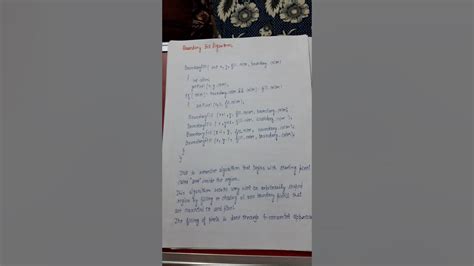 Boundary Fill Algorithm
Boundaryfill ( int x, y, fill color, boundary color)
{ int color;
getpixel (x, y, color);
if ( color != boundary color && color != fill color)
{ setpixel (x, y, fill color);
Boundaryfill ( x+1, y, fill color, boundary color);
Boundaryfill ( x, y+1, fill color, boundary color);
Boundaryfill ( x-1, y, fill color, boundary color);
Boundaryfill ( x, y-1, fill color, boundary color);
}
}
This is recursive algorithm that begins with starting pixel
called "seed" inside the region.
This algorithm works very well to arbitrarily shaped
region by filling or shading all non boundary pixels that
are connected to seed pixel.
The filling of pixels is done through 4-connected